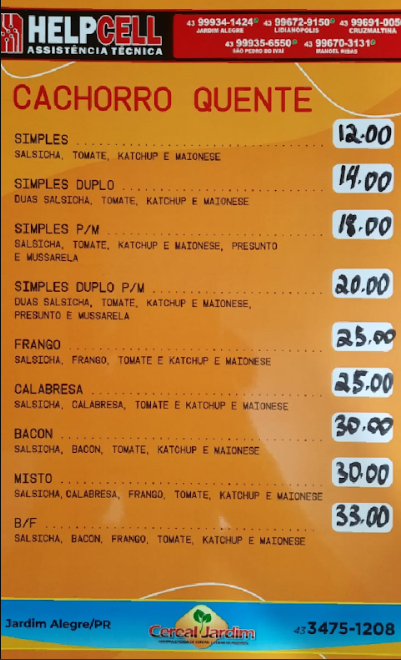 HELPCELL
ASSISTÊNCIA TÉCNICA
43 99934-1424 43 99672-9150 43 99691-005
JARDIM ALEGRE LIDIANÓPOLIS CRUZMALTINA
43 99935-6550 43 99670-3131
SÃO PEDRO DO IVAÍ MANOEL RIBAS
CACHORRO QUENTE
SIMPLES 12.00
SALSICHA, TOMATE, KATCHUP E MAIONESE
SIMPLES DUPLO 14.00
DUAS SALSICHA, TOMATE, KATCHUP E MAIONESE
SIMPLES P/M 18.00
SALSICHA, TOMATE, KATCHUP E MAIONESE, PRESUNTO
E MUSSARELA
SIMPLES DUPLO P/M 20.00
DUAS SALSICHA, TOMATE, KATCHUP E MAIONESE,
PRESUNTO E MUSSARELA
FRANGO 25.00
SALSICHA, FRANGO, TOMATE E KATCHUP E MAIONESE
CALABRESA 25.00
SALSICHA, CALABRESA, TOMATE E KATCHUP E MAIONESE
BACON 30.00
SALSICHA, BACON, TOMATE, KATCHUP E MAIONESE
MISTO 30.00
SALSICHA, CALABRESA, FRANGO, TOMATE, KATCHUP E MAIONESE
B/F 33.00
SALSICHA, BACON, FRANGO, TOMATE, KATCHUP E MAIONESE
Jardim Alegre/PR Cereal Jardim 43 3475-1208